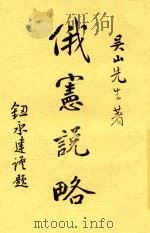 吴山先生著
俄憲說略
鈕永建謹題
mtoou.info